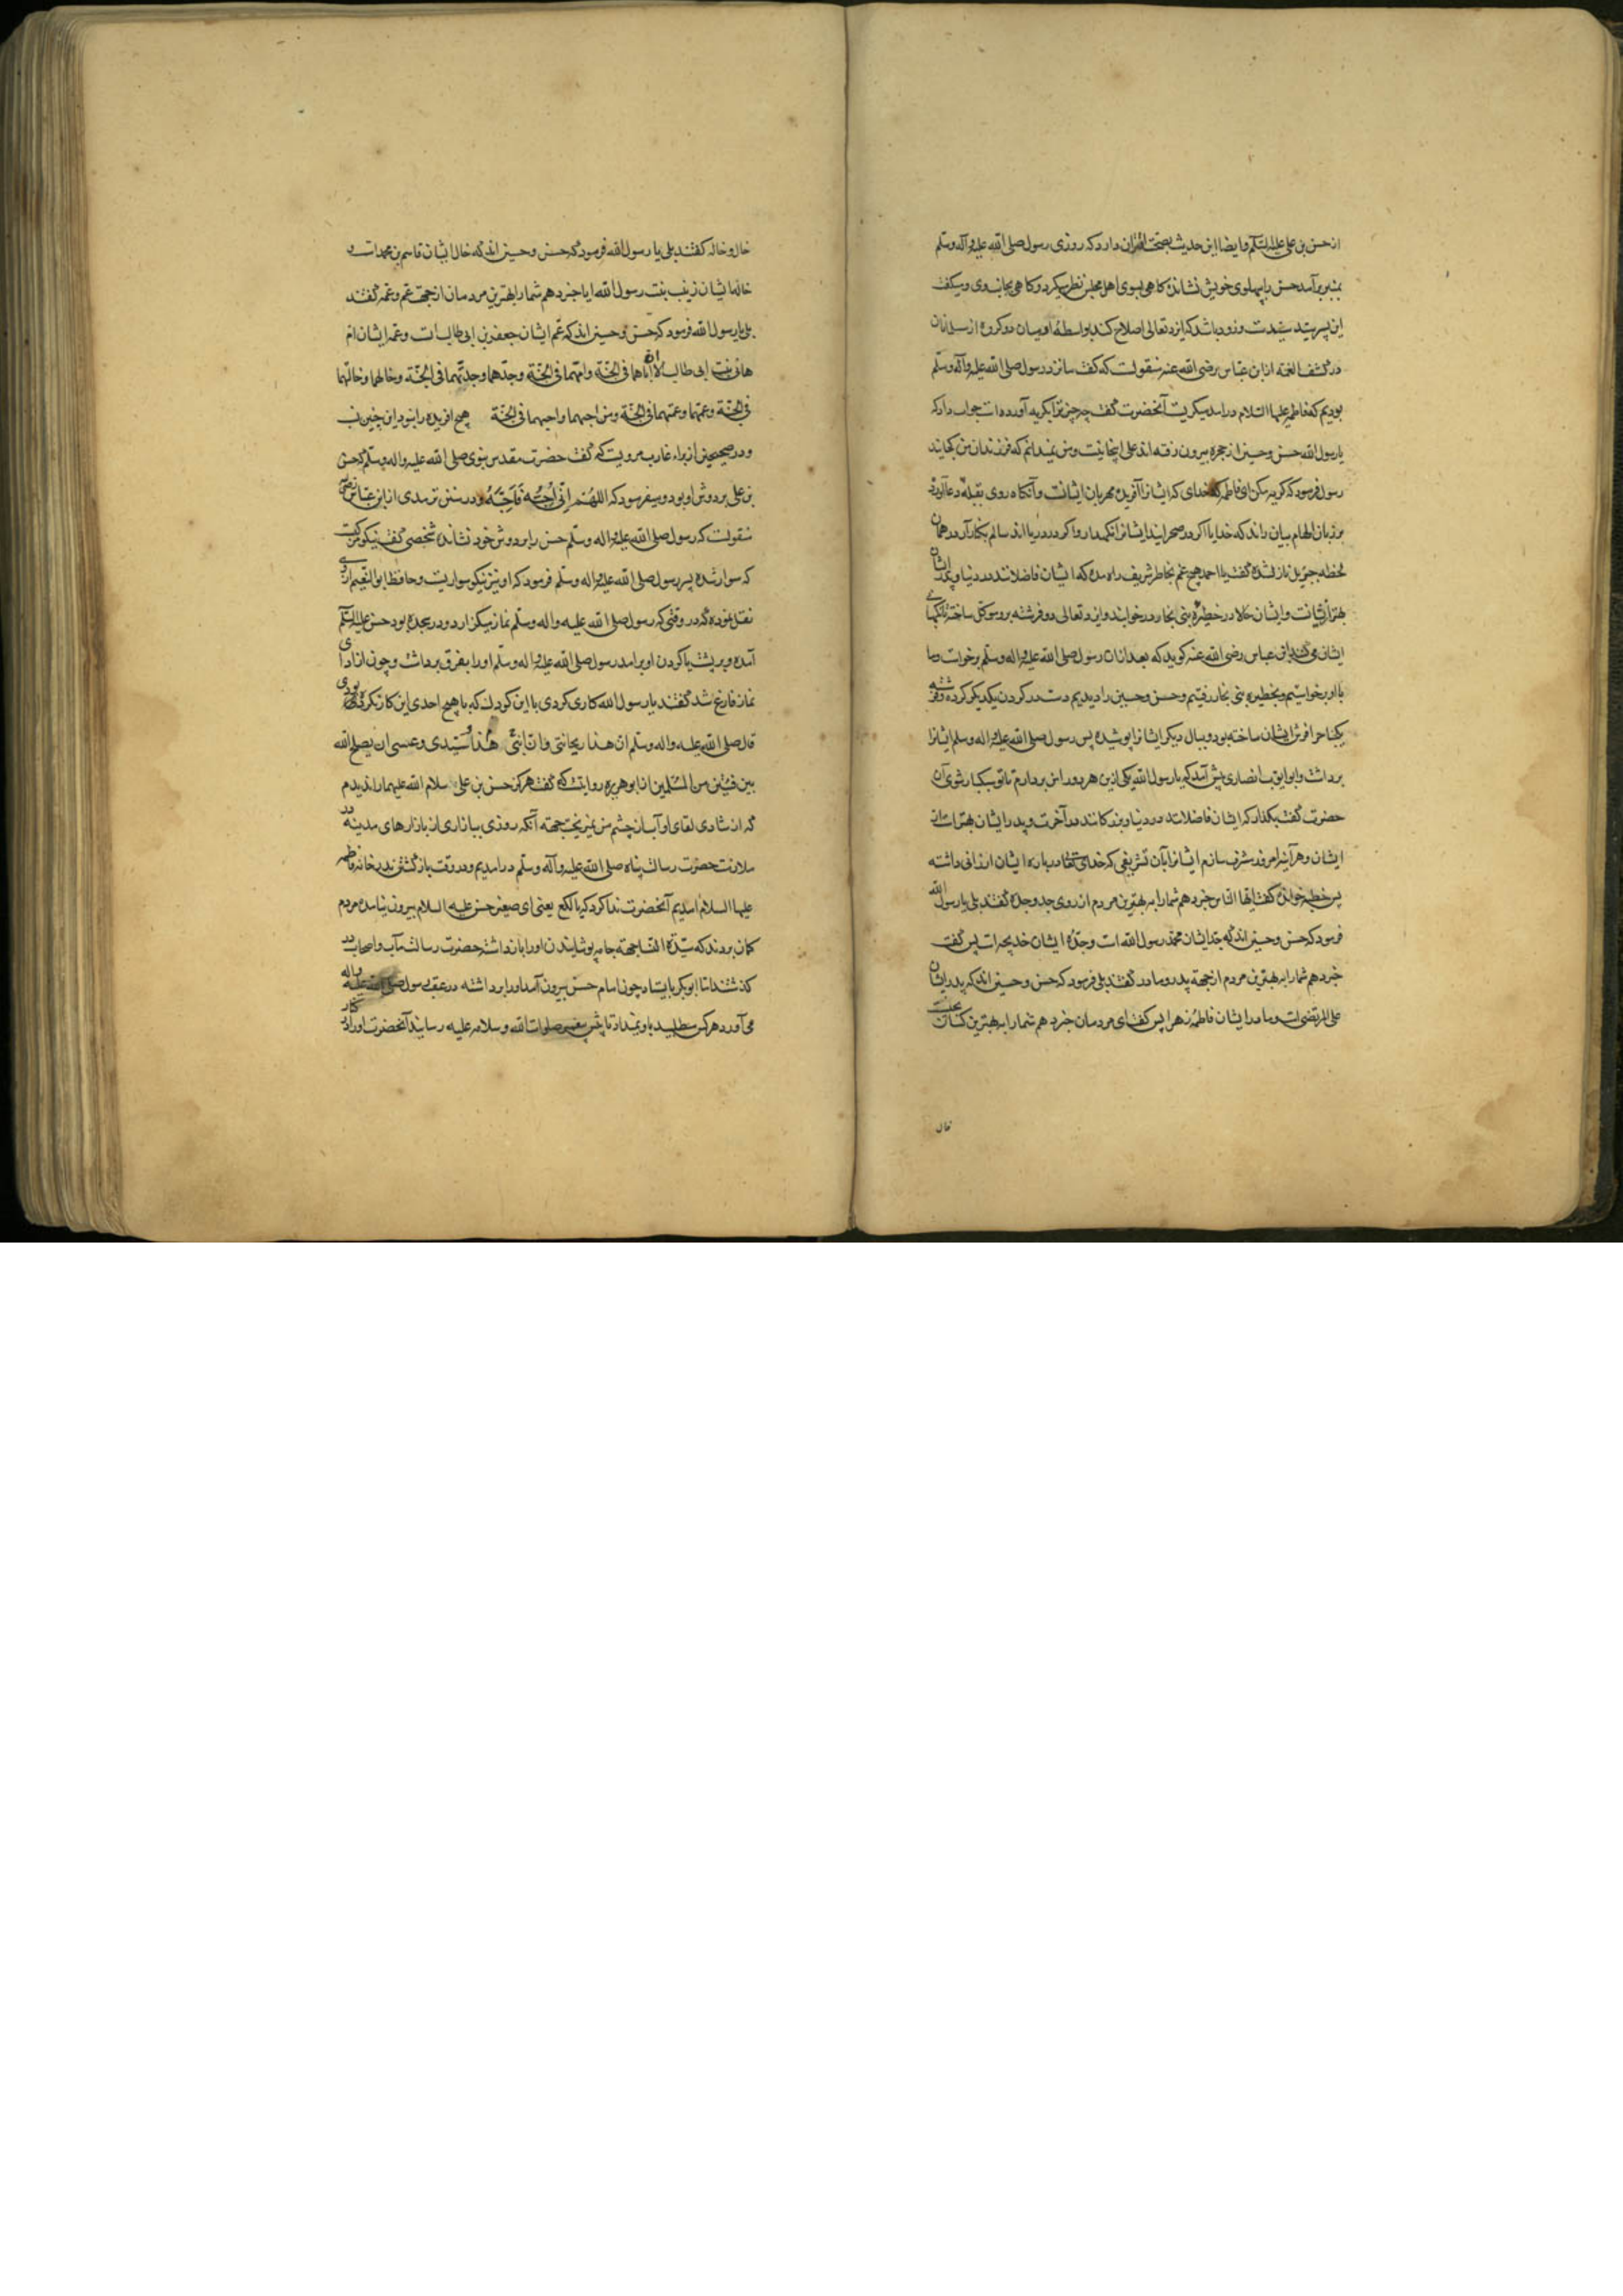 از حسن بن علی علیه السلم وایضا این حدیث بصحت اقتران دارد که روزی رسول صلی الله علیه واله وسلم
بمنبر برآمد حسن را پهلوی خویش نشانده کاهی بسوی اهل مجلس نظر میکرد و کاهی بجانب وی ومیکفت
این پسر سید است وزود باشد که ایزد تعالی اصلاح کند بواسطهٔ او میان دو کروه از مسلمانان
در کشف الغمه از ابن عباس رضی الله عنه منقولست که کفت ما نزد رسول صلی الله علیه وآله وسلم
بودیم که فاطمه علیها السلام درامد میکریست آنحضرت کفت چه چیز ترا بکریه آورده است جواب داد که
یا رسول الله حسن وحسین از حجره بیرون رفته اند علی اینجا نیست ومن نمیدانم که فرزندان من کجایند
رسول فرمود که کریه مکن ای فاطمه که خدای که ایشانرا آفریده مهربان ایشانست وآنکاه روی بقبله دعا آورد
بر زبان الهام بیان راند که خدایا اکر در صحرایند ایشانرا نکهدار واکر در دریا اند سالم بکنار آر در همان
لحظه جبرئیل نازل شده کفت یا احمد هیچ غم بخاطر شریف راه مده که ایشان فاضلانند در دنیا و پدر ایشان
بهتر از ایشانست وایشان حالا در حظیرهٔ بنی نجار در خوابند وایزد تعالی دو فرشته برو موکل ساخته تا نکهبانی
ایشان می کنند ابن عباس رضی الله عنه کوید که بعد ازان رسول صلی الله علیه واله وسلم برخواست وما
با او برخواستیم وبحظیره بنی نجار رفتیم وحسن وحسین را دیدیم دست در کردن یکدیکر کرده وفرشته
یکجناح را فرش ایشان ساخته بود وببال دیکر ایشانرا پوشیده پس رسول صلی الله علیه واله وسلم ایشانرا
برداشت وابو ایوب انصاری پیش آمد که یا رسول الله یکی ازین هر دو را من بردارم تا تو سبکبار شوی آن
حضرت کفت بکذار که ایشان فاضلانند در دنیا وبزرکانند در آخرت وپدر ایشان بهتر است از
ایشان وهر آینه امروز مشرف سازم ایشانرا بآن تشریفی که خدای تعالی درباره ایشان ارزانی داشته
پس خطبه خوانده کفت ایها الناس خبر دهم شما را به بهترین مردم از روی جد وجده کفتند بلی یا رسول الله
فرمود که حسن وحسین اند که جد ایشان محمد رسول الله است وجدهٔ ایشان خدیجه است پس کفت
خبر دهم شما را به بهترین مردم از جهة پدر ومادر کفتند بلی فرمود که حسن وحسین اند که پدر ایشان
علی المرتضی است ومادر ایشان فاطمه زهرا پس کفت ای مردمان خبر دهم شما را به بهترین کسان بحسب
خال
خال وخاله کفتند بلی یا رسول الله فرمود که حسن وحسین اند که خال ایشان قاسم بن محمد است و
خاله ایشان زینب بنت رسول الله ایا خبر دهم شما را بهترین مردمان از جهت عم وعمه کفتند
بلی یا رسول الله فرمود که حسن وحسین اند که عم ایشان جعفر بن ابی طالب است وعمه ایشان ام
هانی بنت ابی طالب الا ان اباهما فی الجنة وامهما فی الجنة وجدهما وجدتهما فی الجنة وخالهما وخالتهما
فی الجنة وعمهما وعمتهما فی الجنة ومن احبهما واحبهما فی الجنة هیچ افریده را نبود این چنین نسب
ودر صحیحین از براء غازب مرویست که کفت حضرت مقدس نبوی صلی الله علیه واله وسلم که حسن
بن علی بر دوش او بود ومیفرمود که اللهم انی احبه فاحبه ودر سنن ترمدی از ابن عباس رضی
منقولست که رسول صلی الله علیه واله وسلم حسن را بر دوش خود نشانده شخصی کفت نیکو مرکبیست
که سوار شدهٔ پسر رسول صلی الله علیه واله وسلم فرمود که او نیز نیکو سواریست وحافظ ابو النعیم ازوی
نقل نموده که در وقتی که رسول صلی الله علیه واله وسلم نماز میکزارد ودر سجده بود حسن علیه السلم
آمده وبر پشت یا کردن او برامد رسول صلی الله علیه واله وسلم او را بفرق برداشت وچون از ادای
نماز فارغ شد کفتند یا رسول الله کاری کردی با این کودک که با هیچ احدی این کار نکرده بودی
قال صلی الله علیه واله وسلم ان هذا ریحانتی وان ابنی هذا سیدی وعسی ان یصلح الله
بین فئتین من المسلمین از ابو هریره روایتست که کفت هرکز حسن بن علی سلام الله علیهما را ندیدم
که از شادی لقای او آب از چشم من نمیریخت جهته آنکه روزی ببازاری از بازارهای مدینه در
ملازمت حضرت رسالت پناه صلی الله علیه وآله وسلم درامدیم ودر وقت بازکشتن بدر خانه فاطمه
علیها السلام امدیم آنحضرت ندا کرد که یا لکع یعنی ای صغیر حسن علیه السلام بیرون نیامده مردم
کمان بردند که سیدة النسا جهته جامه پوشانیدن او را باز داشته حضرت رسالت مآب واصحاب در
کذشتند اما ابوبکر بایستاد چون امام حسن بیرون آمد او را برداشته در عقب رسول صلی الله علیه واله
می آورد هر کس میطلبید باو نمیداد تا پیش پیغمبر صلوات الله وسلامه علیه رسانید آنحضرت او را در کنار